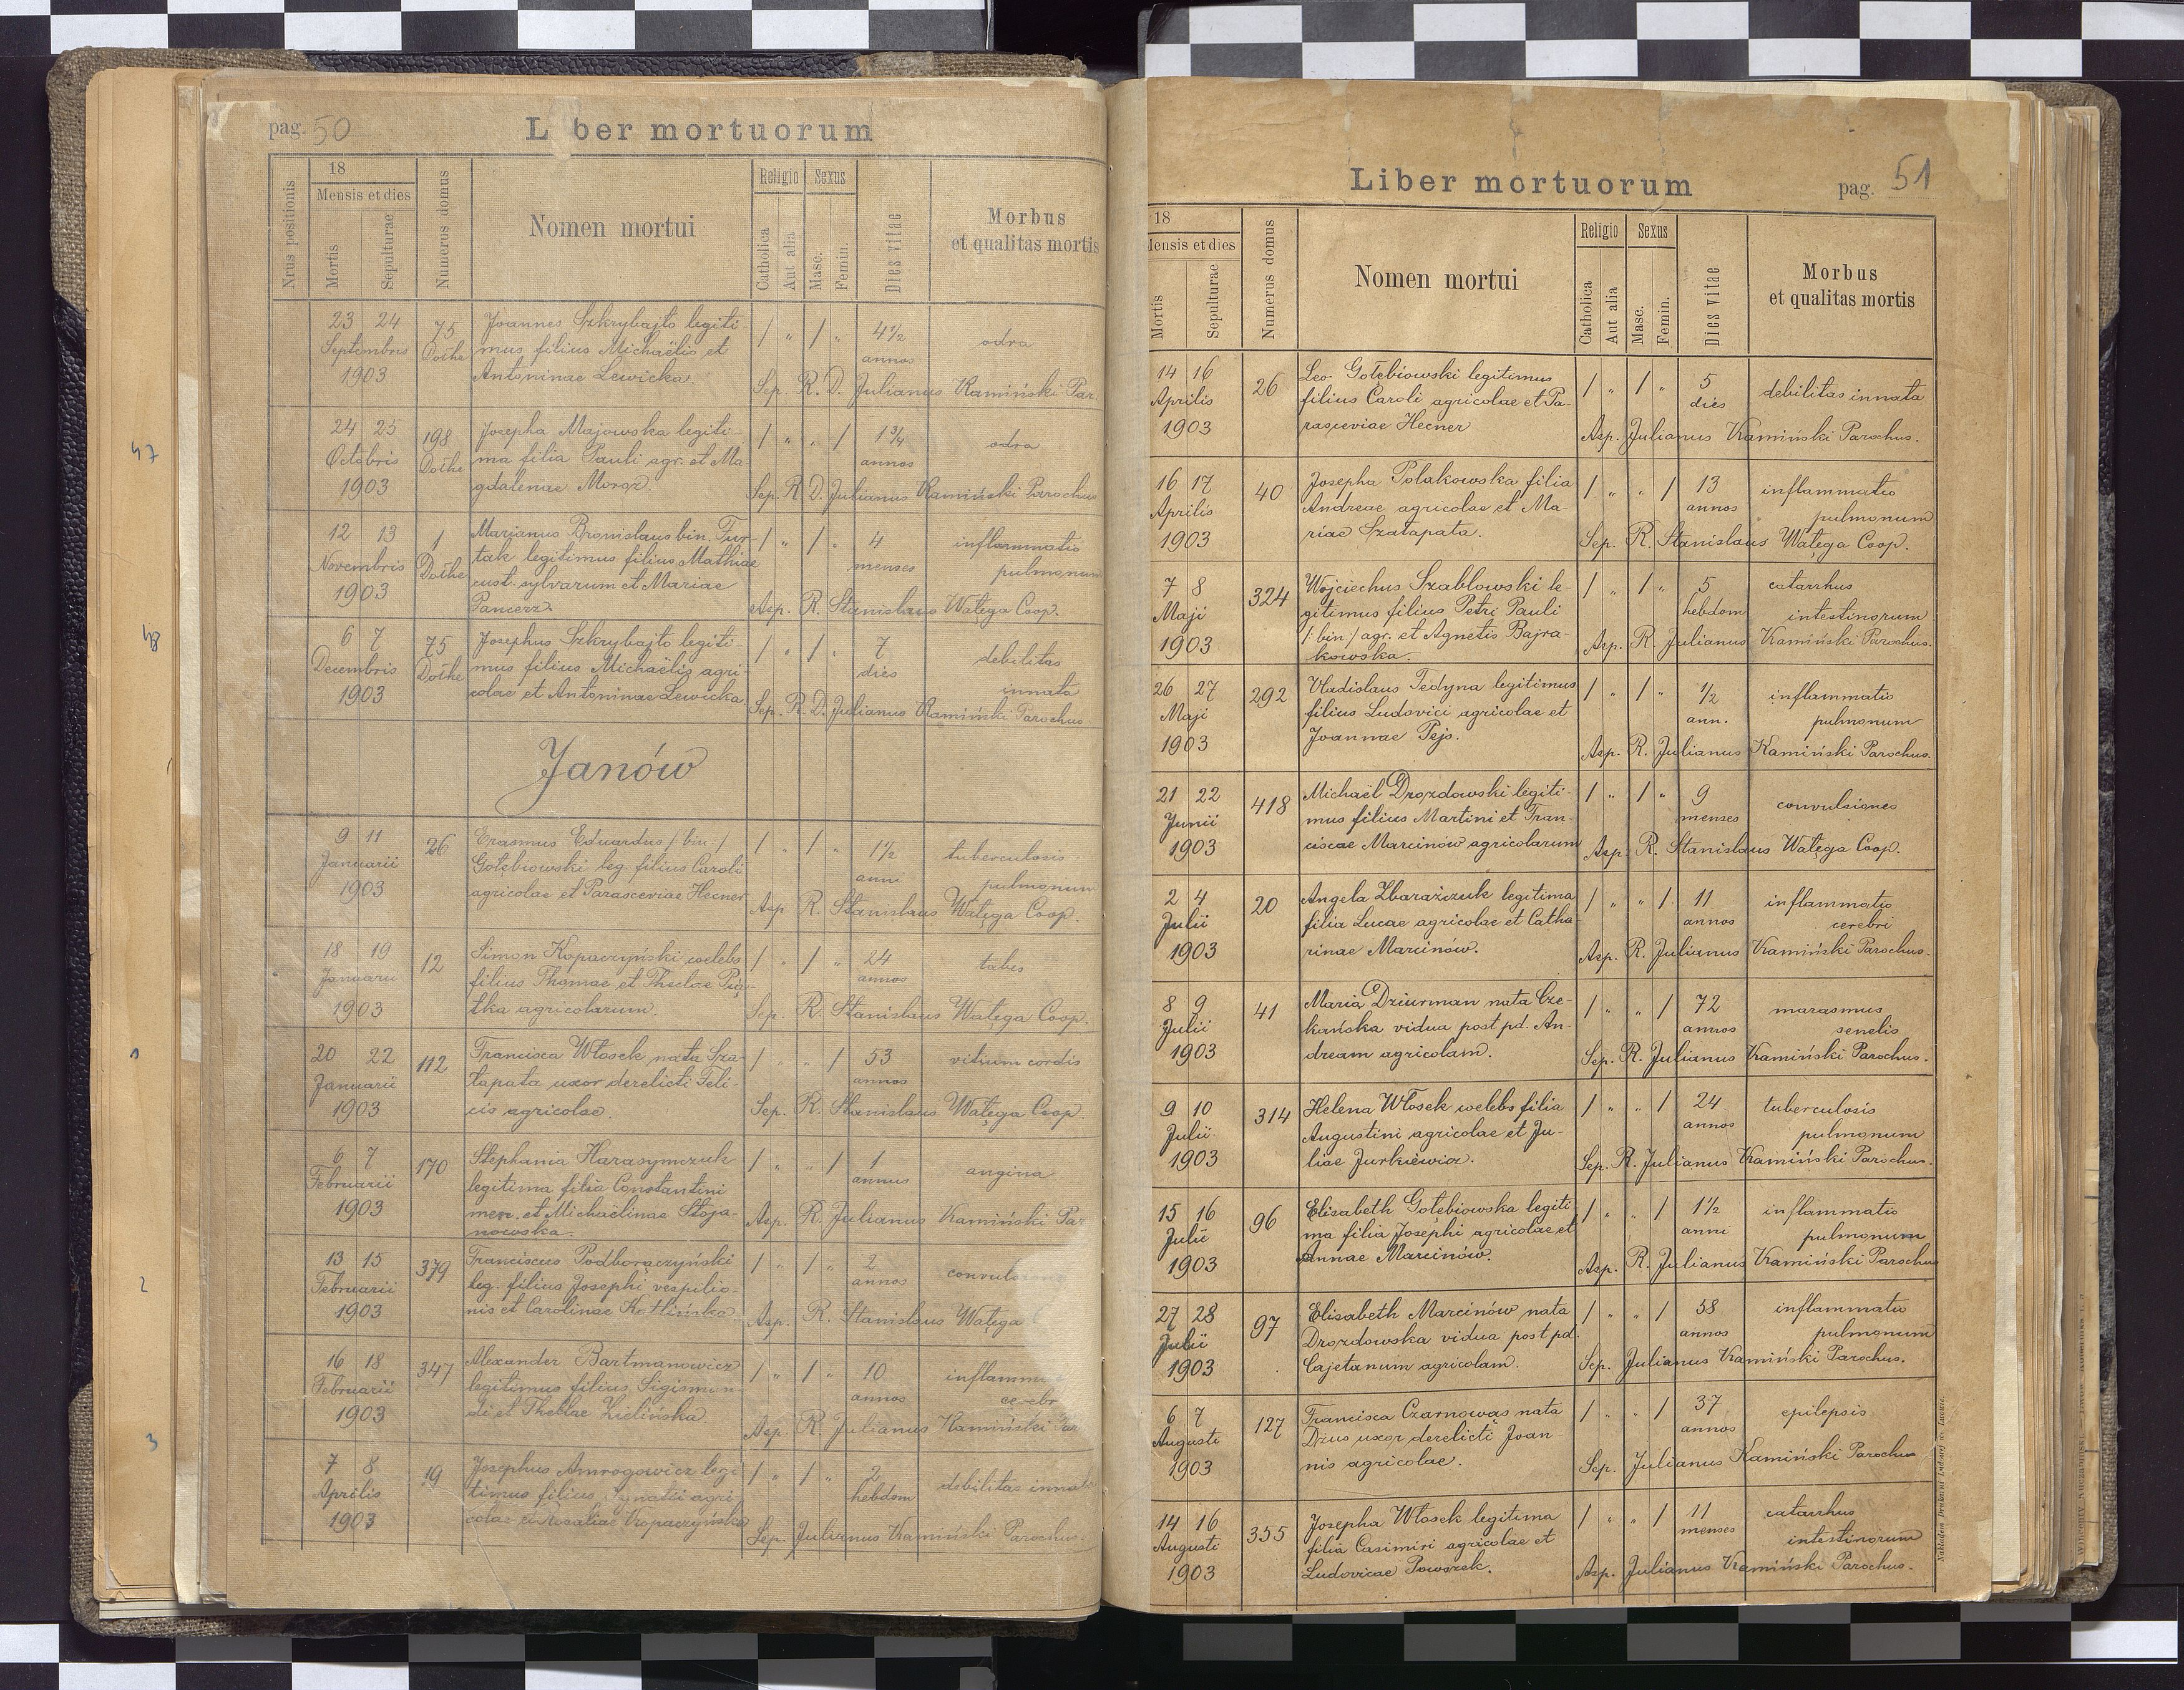 pag. 50
Liber mortuorum
Nrus positionis
18
Mensis et dies
Mortis
Sepulturae
Numerus domus
Nomen mortui
Religio
Catholica
Aut alia
Sexus
Masc.
Femin.
Dies vitae
Morbus
et qualitas mortis
23 24 75 Joannes Szkrybajło legiti- / „ / „ 4 1/2 odra
Septembris Dothe mus filius Michaëlis et annos
1903 Antoninae Lewicka. Sep. R. D. Julianus Kamiński Par.
24 25 198 Josepha Majowska legiti- / „ „ / 1 3/4 odra
Octobris Dothe ma filia Pauli agr. et Ma- annos
1903 gdalenae Moroz. Sep. R. D. Julianus Kamiński Parochus
12 13 1 Marianus Bronislaus bin. Fur- / „ / „ 4 inflammatio
Novembris Dothe tak legitimus filius Mathiae menses pulmonum
1903 cust. sylvarum et Mariae
Pancerz. Asp. R. Stanislaus Wałęga Coop.
6 7 75 Josephus Szkrybajło legiti- / „ / „ 7 debilitas
Decembris Dothe mus filius Michaëlis agri- dies innata
1903 colae et Antoninae Lewicka Sep. R. D. Julianus Kamiński Parochus.
Janów
9 11 26 Erasmus Eduardus /:bin:/ / „ / „ 1 1/2 tuberculosis
Januarii Gołębiowski leg. filius Caroli anni pulmonum
1903 agricolae et Parasceviae Hecner Asp. R. Stanislaus Wałęga Coop.
18 19 12 Simon Kopaczyński coelebs / „ / „ 24 tabes
Januarii filius Thomae et Theclae Pią- annos
1903 tka agricolarum. Sep. R. Stanislaus Wałęga Coop.
20 22 112 Francisca Włosek nata Sza- / „ „ / 53 vitium cordis
Januarii łapata uxor derelicti Feli- annos
1903 cis agricolae. Sep. R. Stanislaus Wałęga Coop.
6 7 170 Stephania Harasymczuk / „ „ / 1 angina
Februarii legitima filia Constantini annus
1903 mer. et Michaelinae Stoja-
nowska. Asp. R. Julianus Kamiński Par
13 15 379 Franciscus Podborączyński / „ / „ 2 convulsiones
Februarii leg. filius Josephi vespilio- annos
1903 nis et Carolinae Kotlińska. Asp. R. Stanislaus Wałęga
16 18 347 Alexander Bartmanowicz / „ / „ 10 inflamm
Februarii legitimus filius Sigismun- annos cerebr
1903 di et Theclae Zielińska. Asp. R. Julianus Kamiński Par
7 8 19 Josephus Amrogowicz legi- / „ / „ 2 debilitas innata
Aprilis timus filius Ignatii agri- hebdom
1903 colae et Rosaliae Kopaczyńska Sep. Julianus Kamiński Parochus.
47
48
1
2
3
Liber mortuorum
pag. 51
18
Mensis et dies
Mortis
Sepulturae
Numerus domus
Nomen mortui
Religio
Catholica
Aut alia
Sexus
Masc.
Femin.
Dies vitae
Morbus
et qualitas mortis
14 16 26 Leo Gołębiowski legitimus / „ / „ 5 debilitas innata
Aprilis filius Caroli agricolae et Pa- dies
1903 rasceviae Hecner Asp. Julianus Kamiński Parochus.
16 17 40 Josepha Polakowska filia / „ „ / 13 inflammatio
Aprilis Andreae agricolae et Ma- annos pulmonum
1903 riae Szałapata. Sep. R. Stanislaus Wałęga Coop.
7 8 324 Wojciechus Szablowski le- / „ / „ 5 catarrhus
Maji gitimus filius Petri Pauli hebdom intestinorum
1903 /:bin:/ agr. et Agnetis Bajra- Asp. R. Julianus Kamiński Parochus.
kowska.
26 27 292 Vladislaus Fedyna legitimus / „ / „ 1/2 inflammatio
Maji filius Ludovici agricolae et ann. pulmonum
1903 Joannae Pejs. Asp. R. Julianus Kamiński Parochus.
21 22 418 Michaël Drozdowski legiti- / „ / „ 9 convulsiones
Junii mus filius Martini et Fran- menses
1903 ciscae Marcinów agricolarum Asp. R. Stanislaus Wałęga Coop.
2 4 20 Angela Zbarażczuk legitima / „ „ / 11 inflammatio
Julii filia Lucae agricolae et Catha- annos cerebri
1903 rinae Marcinów. Asp. R. Julianus Kamiński Parochus.
8 9 41 Maria Dziurman nata Cze- / „ „ / 72 marasmus
Julii kańska vidua post pd. An- annos senelis
1903 dream agricolam. Sep. R. Julianus Kamiński Parochus.
9 10 314 Helena Włosek coelebs filia / „ „ / 24 tuberculosis
Julii Augustini agricolae et Ju- annos pulmonum
1903 liae Jurkiewicz. Sep. R. Julianus Kamiński Parochus.
15 16 96 Elisabeth Gołębiowska legiti / „ „ / 1 1/2 inflammatio
Julii ma filia Josephi agricolae et anni pulmonum
1903 Annae Marcinów. Asp. R. Julianus Kamiński Parochus
27 28 97 Elisabeth Marcinów nata / „ „ / 58 inflammatio
Julii Drozdowska vidua post pd. annos pulmonum
1903 Cajetanum agricolam. Sep. Julianus Kamiński Parochus.
6 7 127 Francisca Czarnowąs nata / „ „ / 37 epilepsis
Augusti Dzus uxor derelicti Joan- annos
1903 nis agricolae. Sep. Julianus Kamiński Parochus
14 16 355 Josepha Włosek legitima / „ „ / 11 catarrhus
Augusti filia Casimiri agricolae et menses intestinorum
1903 Ludovicae Powszek. Asp. Julianus Kamiński Parochus.
Nakładem Drukarni Ludowej we Lwowie.